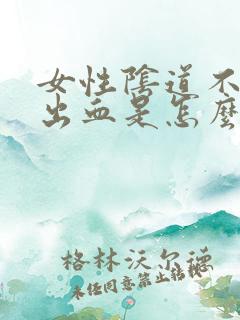 女性陰道不
出血是怎麼
格林沃尔德
未经同意禁止转载